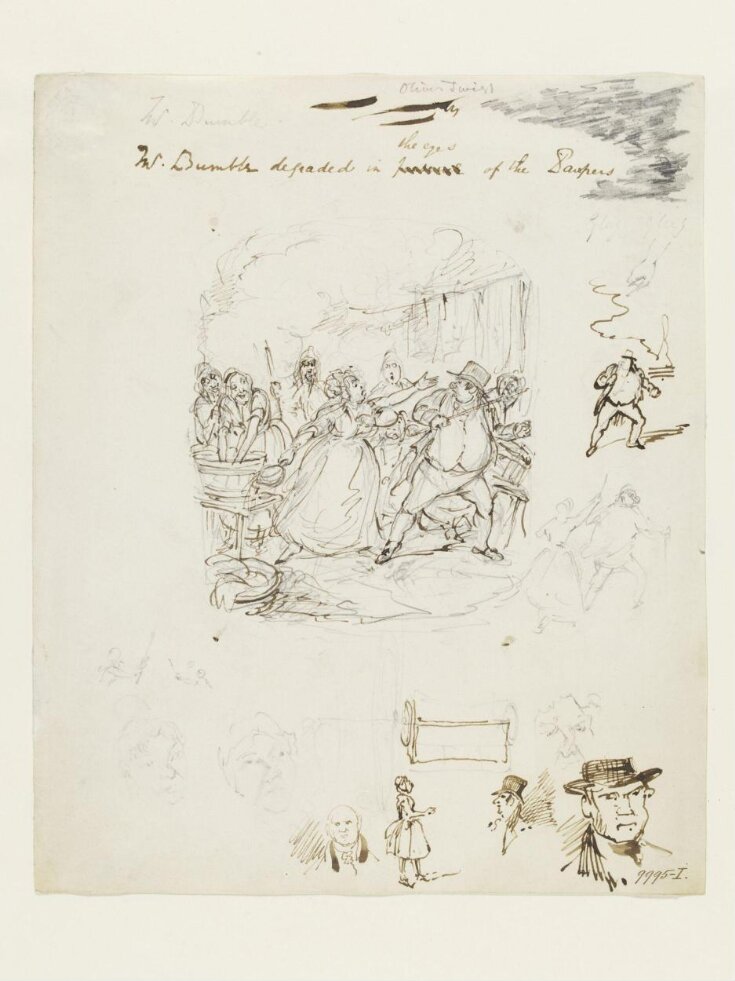 Oliver Twist
Mr. Bumble
the eyes
Mr. Bumble degraded in of the Paupers
9995-I.